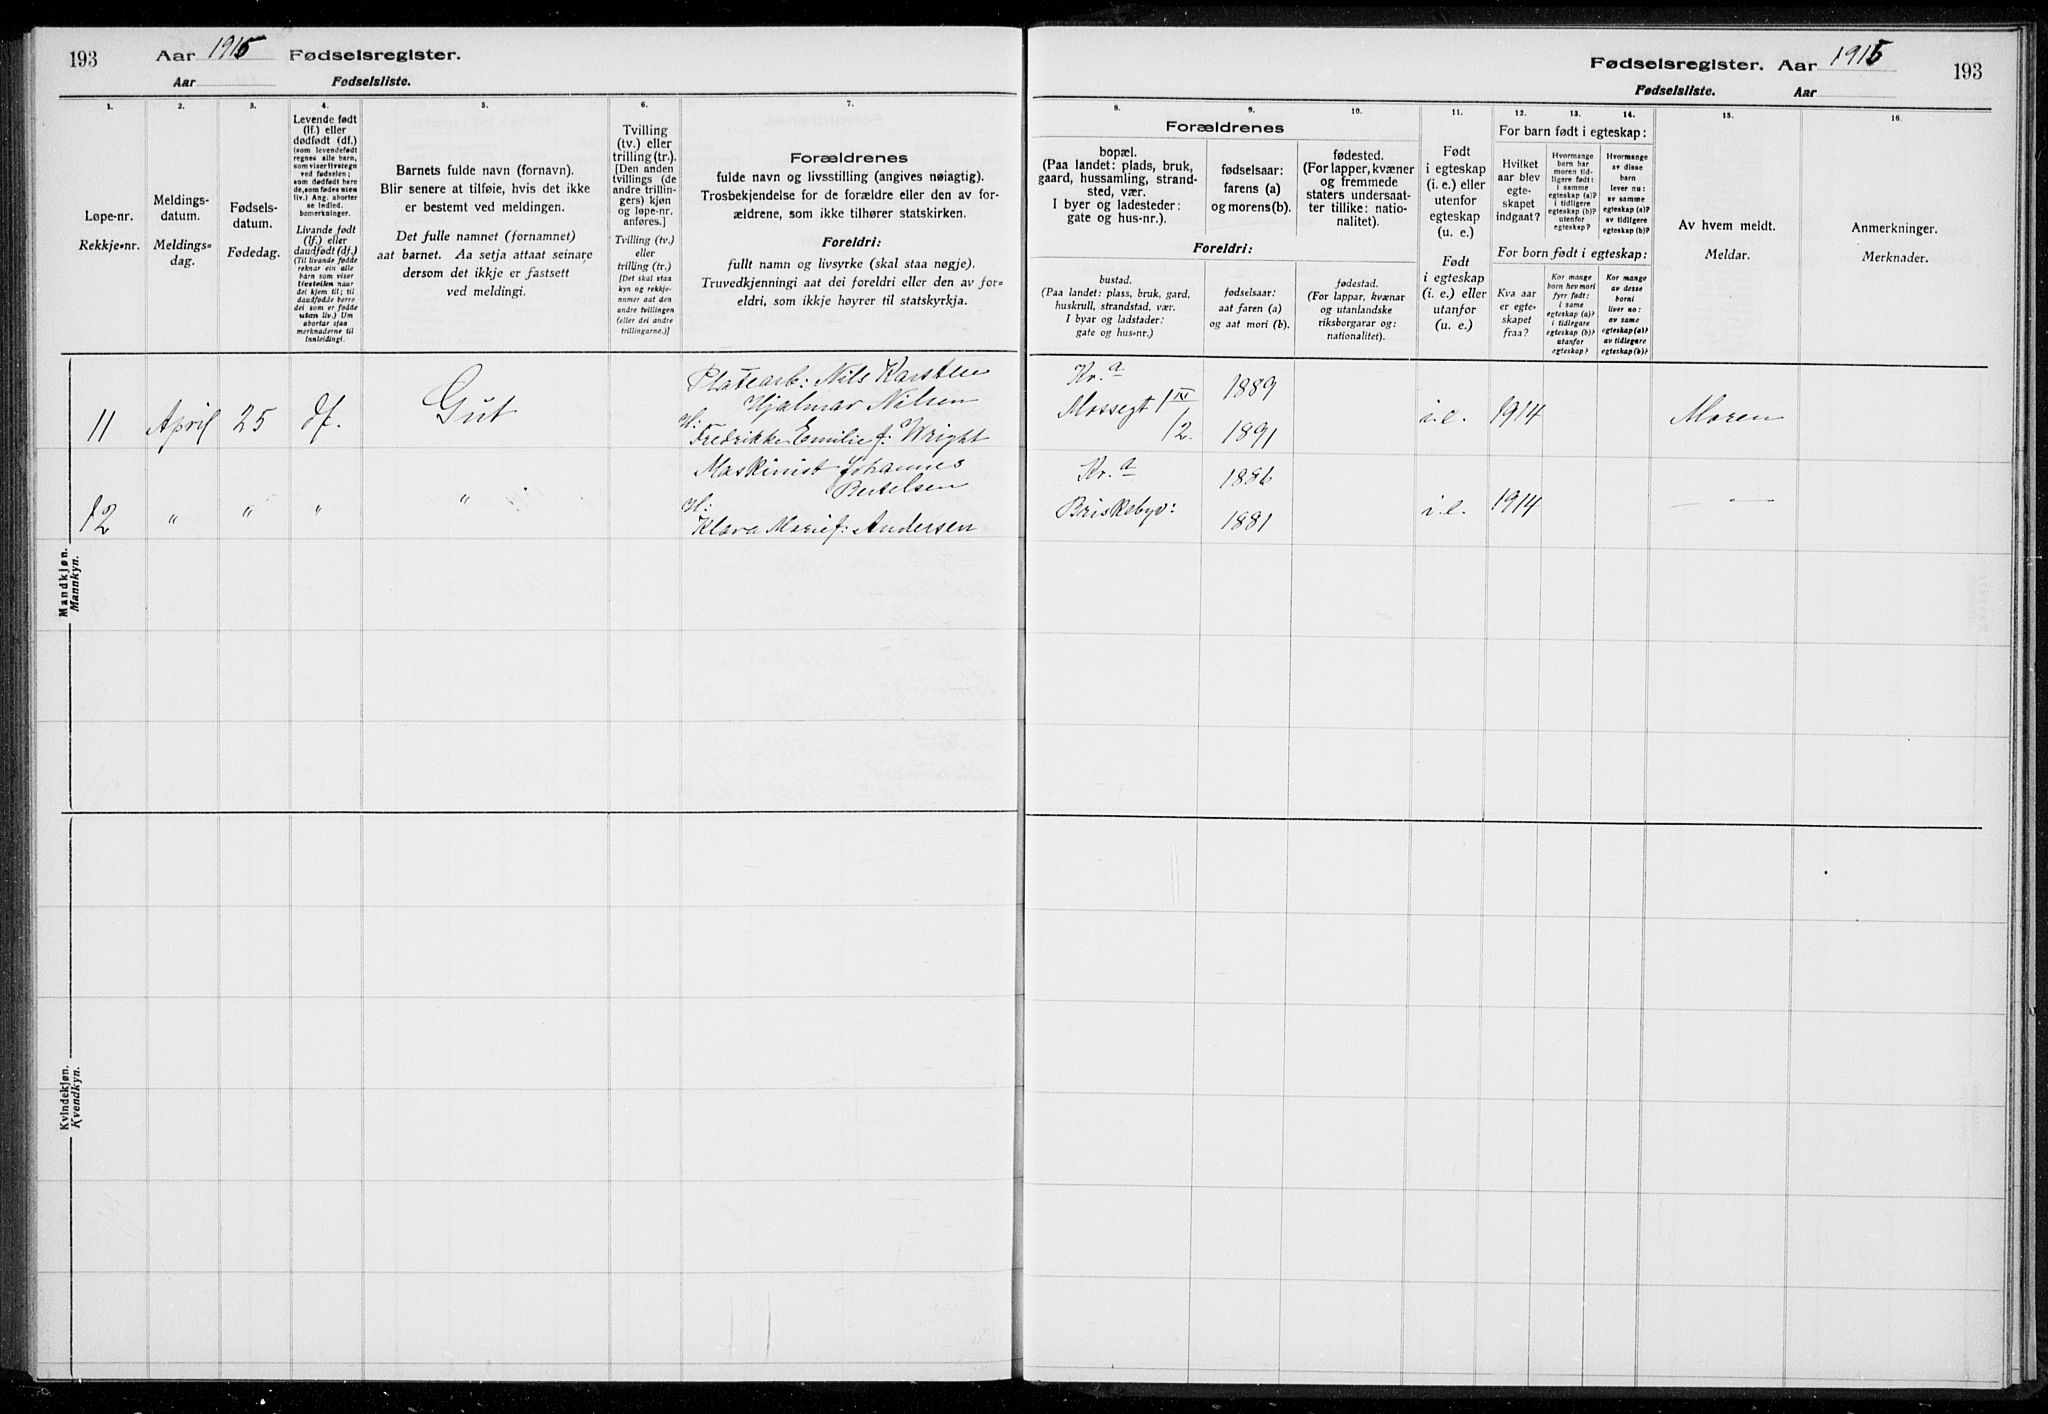 193
Aar 1915 Fødselsregister.
Aar Fødselsliste.
1.
2.
3.
4.
5.
6.
7.
Løpe-nr.
Rekkje-nr.
Meldings-
datum.
Meldings-
dag.
Fødsels-
datum.
Fødedag.
Levende født
(lf.) eller
dødfødt (df.)
(som levendefødt
regnes alle barn,
som viser livstegn
ved fødselen;
som dødfødt bare
de, som fødes uten
liv.) Ang. aborter
se Indled.
bemerkninger.
Livande født
(lf.) eller
daudfødt (df.)
(Til livande fødde
reknar ein alle
barn som viser
livsteikn naar
dei kjem til; til
daudfødde berre
dei som er fødde
utan liv.) Um
abortar sjaa
merknaderne til
innleidingi.
Barnets fulde navn (fornavn).
Blir senere at tilføie, hvis det ikke
er bestemt ved meldingen.
Det fulle namnet (fornamnet)
aat barnet. Aa setja attaat seinare
dersom det ikkje er fastsett
ved meldingi.
Tvilling
(tv.) eller
trilling (tr.).
[Den anden
tvillings (de
andre trillin-
gers) kjøn
og løpe-nr.
anføres.]
Tvilling (tv.)
eller
trilling (tr.)
[Det skal staa
kyn og rekkje-
numer aat den
andre tvillingen
(eller dei andre
trillingarne.)]
Forældrenes
fulde navn og livsstilling (angives nøiagtig).
Trosbekjendelse for de forældre eller den av for-
ældrene, som ikke tilhører statskirken.
Foreldri:
fullt namn og livsyrke (skal staa nøgje).
Truvedkjenningi aat dei foreldri eller den av for-
eldri, som ikkje høyrer til statskyrkja.
Mandkjøn.
Mannkyn.
11 April 25 df. Gut
Platearb: Nils Karsten
Hjalmar Nilsen
H:
Fredrikke Emilie f: Wright
12 " " " "
Maskinist Johannes
Bertelsen
H:
Klara Marie f: Andersen
Kvindekjøn.
Kvendkyn.
Fødselsregister. Aar 1915
Fødselsliste. Aar
193
8.
9.
10.
11.
12.
13.
14.
15.
16.
Forældrenes
bopæl.
(Paa landet: plads, bruk,
gaard, hussamling, strand-
sted, vær.
I byer og ladesteder:
gate og hus-nr.).
fødselsaar:
farens (a)
og morens (b).
fødested.
(For lapper, kvæner
og fremmede
staters undersaat-
ter tillike: natio-
nalitet).
Foreldri:
bustad.
(Paa landet: plass, bruk, gard,
huskrull, strandstad, vær.
I byar og ladstader:
gate og hus-nr.)
fødselsaar:
aat faren (a)
og aat mori (b).
fødestad.
(For lappar, kvænar
og utanlandske
riksborgarar og:
nationalitet).
Født
i egteskap
(i. e.) eller
utenfor
egteskap
(u. e.)
Født
i egteskap
(i. e.) eller
utanfor
(u. e.)
For barn født i egteskap:
Hvilket
aar blev
egte-
skapet
indgaat?
Hvormange
barn har
moren tid-
ligere født:
i samme
egteskap (a)?
i tidligere
egteskap (b)?
utenfor
egteskap?
Hvormange
av disse
barn
lever nu:
av samme
egteskap (a)?
av tidligere
egteskap (b)?
For born født i egteskap:
Kva aar
er egte-
skapet
fraa?
Kor mange
born hev mori
fyrr født:
i same
egteskap (a)?
i tidlegare
egteskap (b)?
utanfor
egteskap?
Kor mange
av desse
borni
liver no:
av same
egteskap (a)?
av tidlegare
egteskap (b)?
Av hvem meldt.
Meldar.
Anmerkninger.
Merknader.
Kr.a
Mossegt 1 IV
12.
1889
1891
i.e. 1914 Moren
Kr.a
Briskebyv:
1886
1881
i.e. 1914 —